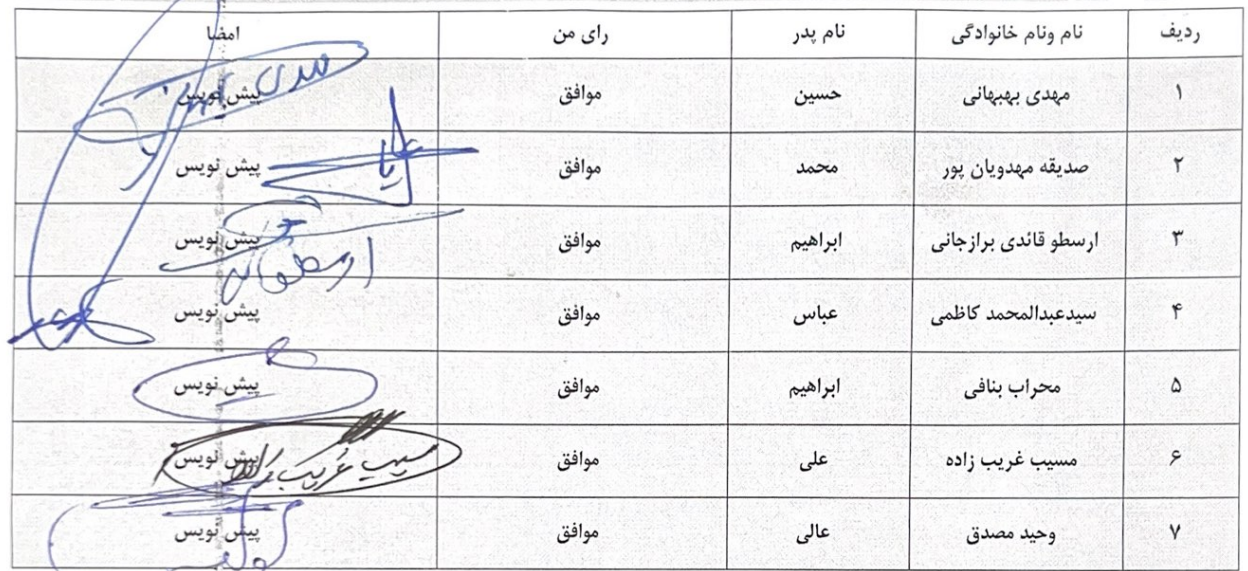 ردیف نام ونام خانوادگی نام پدر رای من امضا
۱ مهدی بهبهانی حسین موافق پیش نویس
۲ صدیقه مهدویان پور محمد موافق پیش نویس
۳ ارسطو قائدی برازجانی ابراهیم موافق پیش نویس
ارسطو
۴ سیدعبدالمحمد کاظمی عباس موافق پیش نویس
۵ محراب بنافی ابراهیم موافق پیش نویس
۶ مسیب غریب زاده علی موافق پیش نویس
مسیب غریب زاده
۷ وحید مصدق عالی موافق پیش نویس